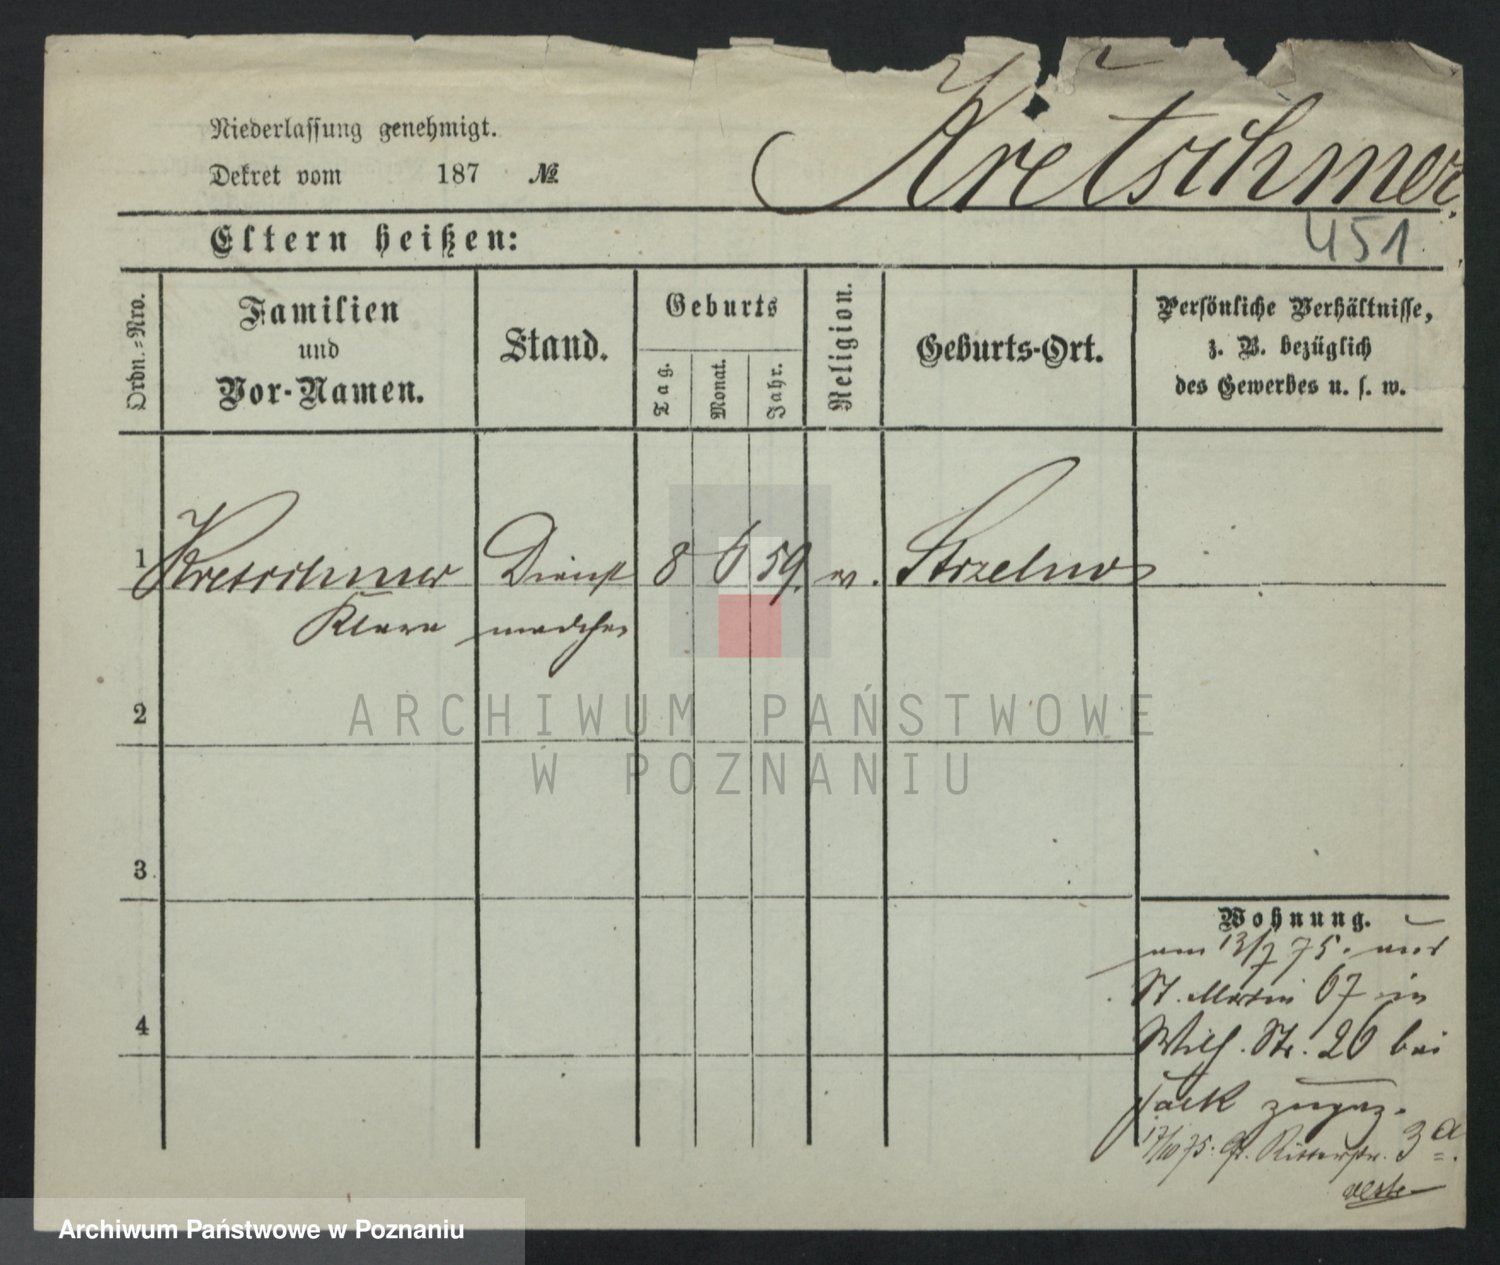 Niederlassung genehmigt.
Dekret vom 187 №
Kretschmer.
Eltern heißen:
451
Ordn.-Nro.
Familien
und
Vor-Namen.
Stand.
Geburts
Tag.
Monat.
Jahr.
Religion.
Geburts-Ort.
Persönliche Verhältnisse,
z. B. bezüglich
des Gewerbes u. s. w.
1 Kretschmer Dienst 8 6 59. ev. Strzelno
Klara madchen
2
3
4
Wohnung.
am 13/7 75. aus
St. Martin 67 in
Wilh. Str. 26 bei
Jack zugez.
17/10 75. Gr. Ritterstr. 3a.
ARCHIWUM PAŃSTWOWE
W POZNANIU
Archiwum Państwowe w Poznaniu